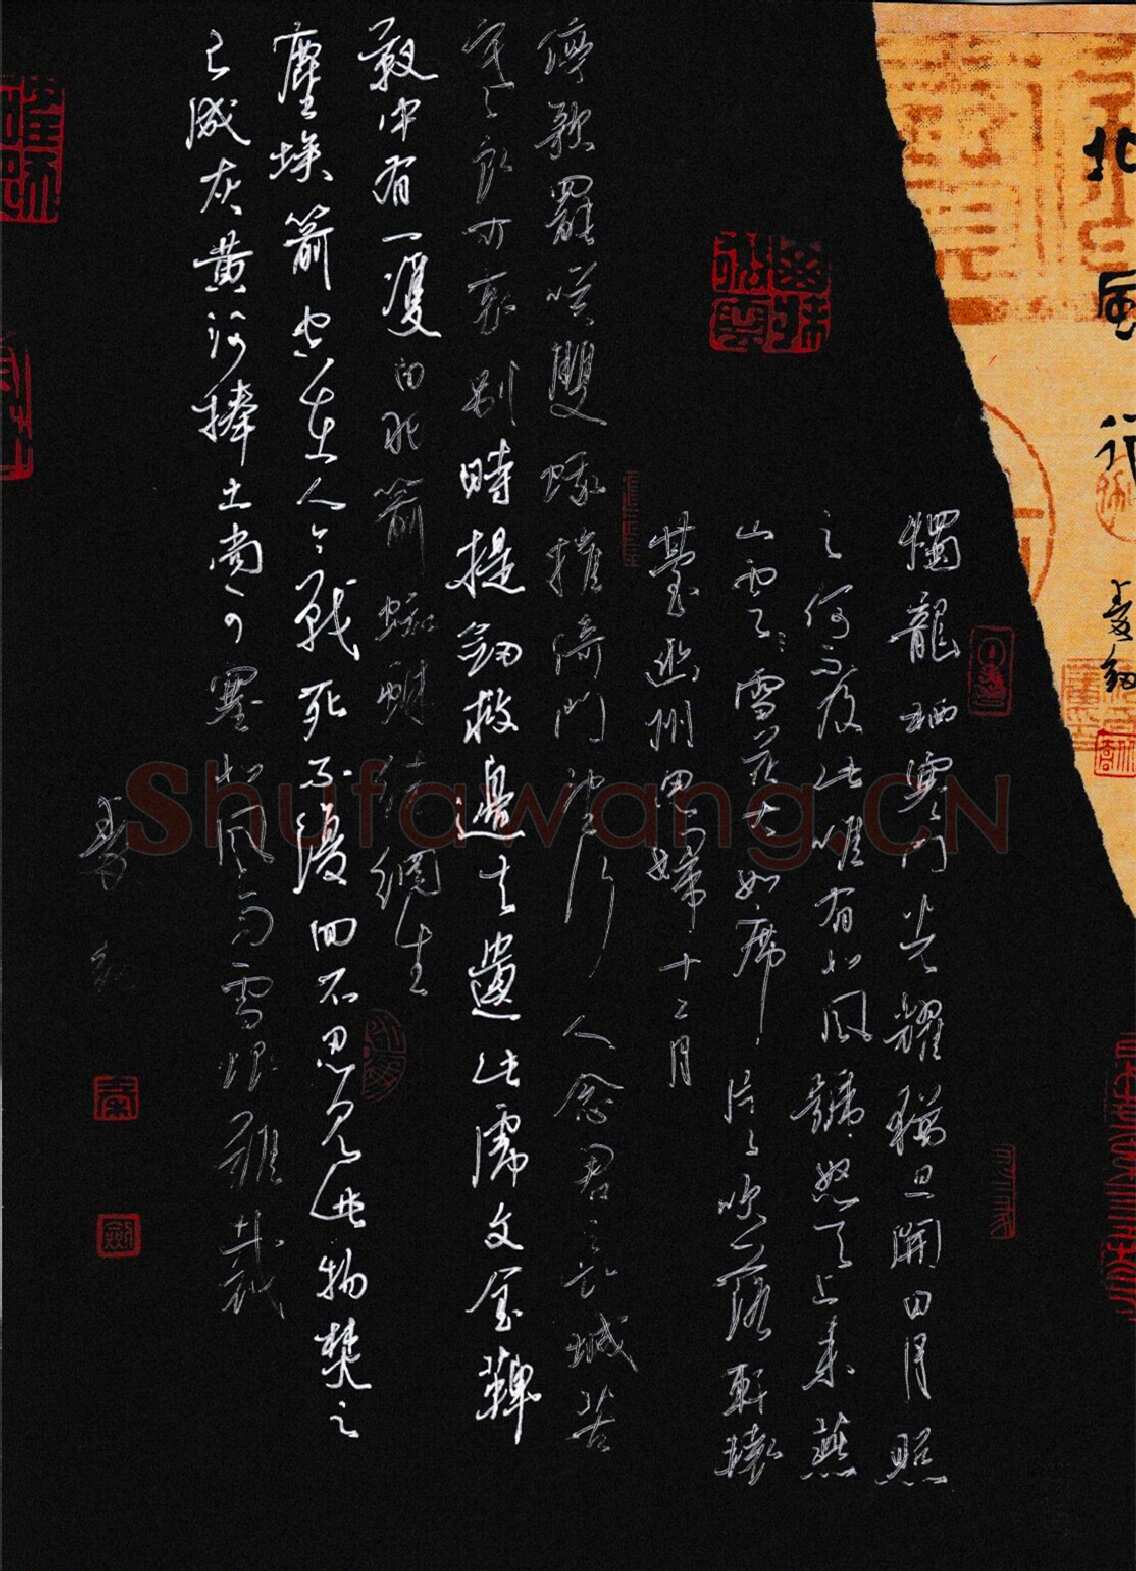 北風行
燭龍栖寒門光耀猶旦開日月照
之何不及此唯有北風號怒天上來燕
山雪花大如席片片吹落軒轅
臺幽州思婦十二月
停歌罷笑雙蛾摧倚門望行人念君長城苦
寒良可哀別時提劍救邊去遺此虎文金鞞
靫中有一雙白羽箭蜘蛛結網生
塵埃箭空在人今戰死不復回不忍見此物焚之
已成灰黃河捧土尚可塞北風雨雪恨難裁
秦
劍
Shufawang.CN